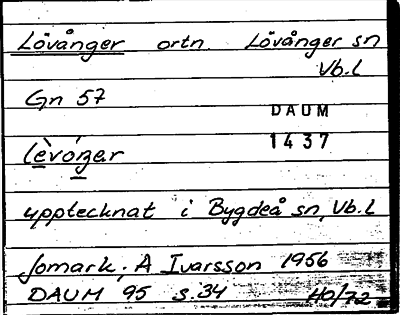 Lövånger ortn. Lövånger sn
Vb.l
Gn 57
DAUM
1437
lèvóŋer
upptecknat i Bygdeå sn, Vb.l
fomark. A Ivarsson 1956
DAUM 95 s.34 40/72